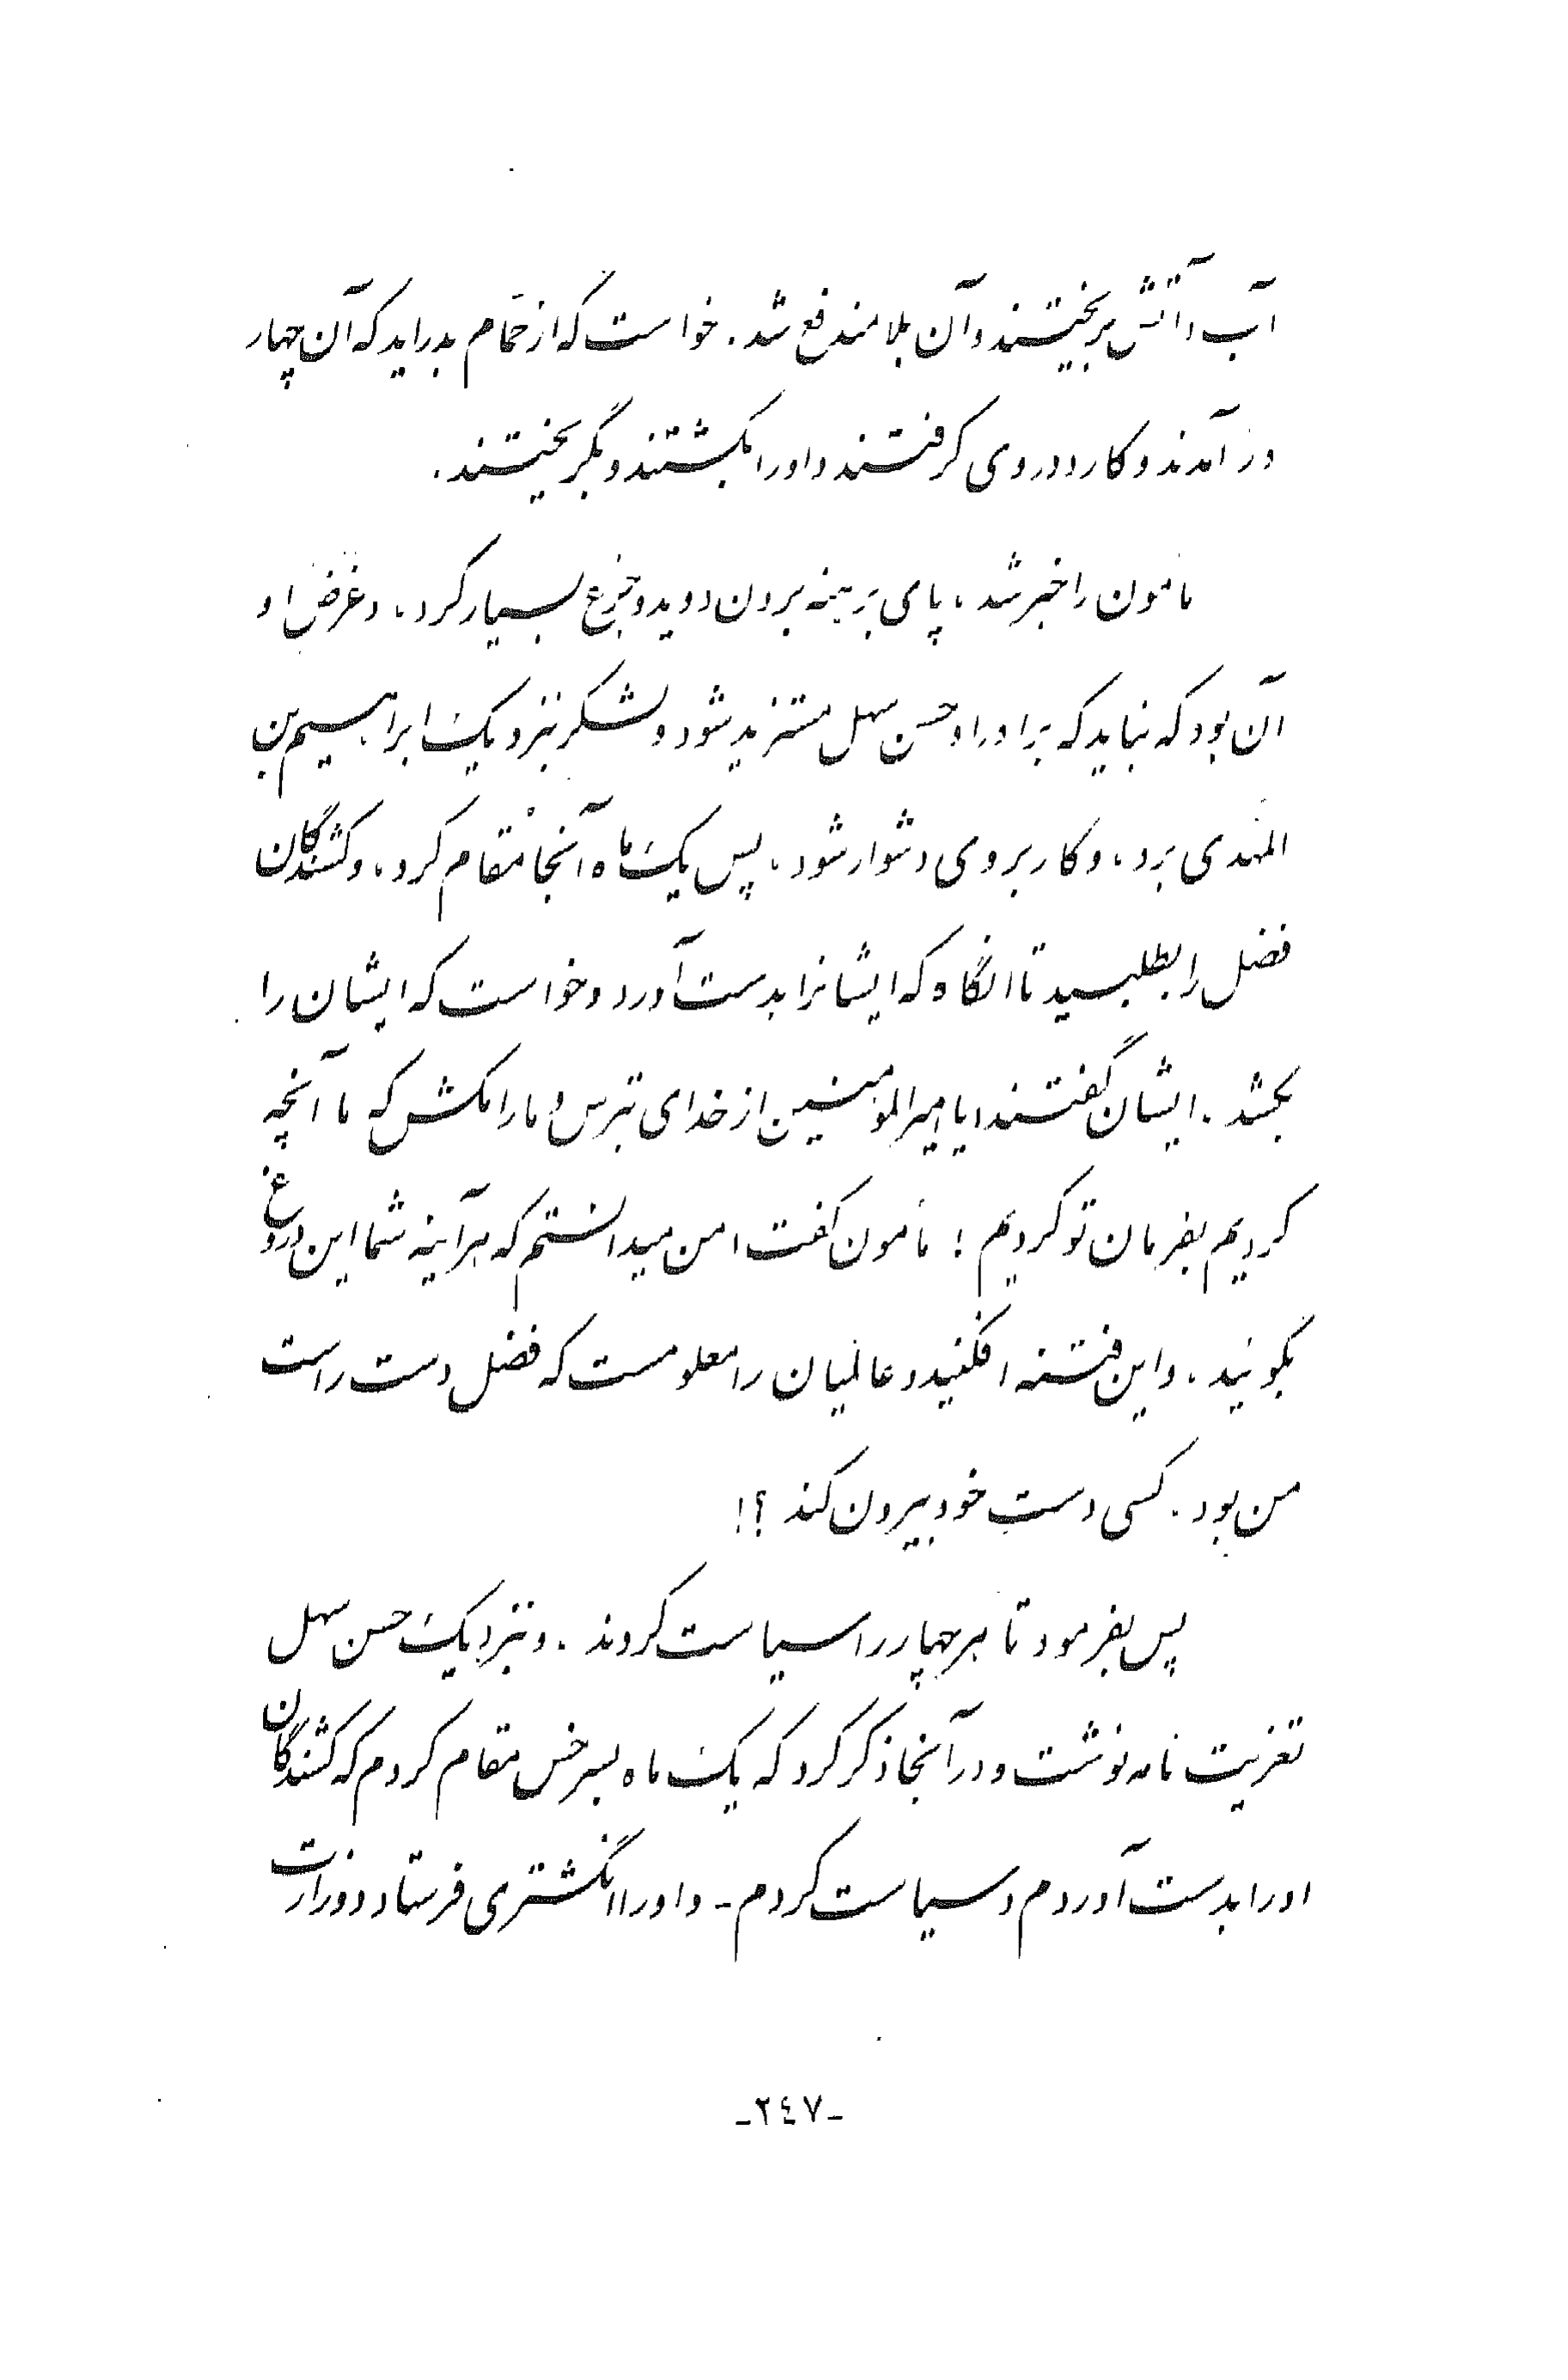 آب و آتش بریختند و آن بلا مندفع شد. خواست که از حمّام بدراید که آن چهار
در آمدند و کارد در وی گرفتند و او را بکشتند و بگریختند.
مأمون را خبر شد، پای برهنه برون دوید و جزع بسیار کرد، و غرض او
آن بود که نباید که برادر او حسن سهل مستزید شود و لشکر بنزدیک ابراهیم بن
المهدی برد، و کار بر وی دشوار شود، پس یک ماه آنجا مُقام کرد، و کشندگان
فضل را بطلبید تا انگاه که ایشانرا بدست آورد و خواست که ایشان را
بکشد. ایشان گفتند ایا امیرالمؤمنین از خدای بترس و ما را مکش که ما آنچه
کردیم بفرمان تو کردیم؛ مأمون گفت، من میدانستم که هرآینه شما این دروغ
بگوئید، و این فتنه افکنید و عالمیان را معلومست که فضل دست راست
من بود. کسی دست خود بیرون کند ؟!
پس بفرمود تا هر چهار را سیاست کردند. و بنزدیک حسن سهل
تعزیت نامه نوشت و در آنجا ذکر کرد که یک ماه بسرخس مقام کردم که کشندگان
او را بدست آوردم و سیاست کردم - و او را انگشتری فرستاد و وزارت
-٢٤٧-